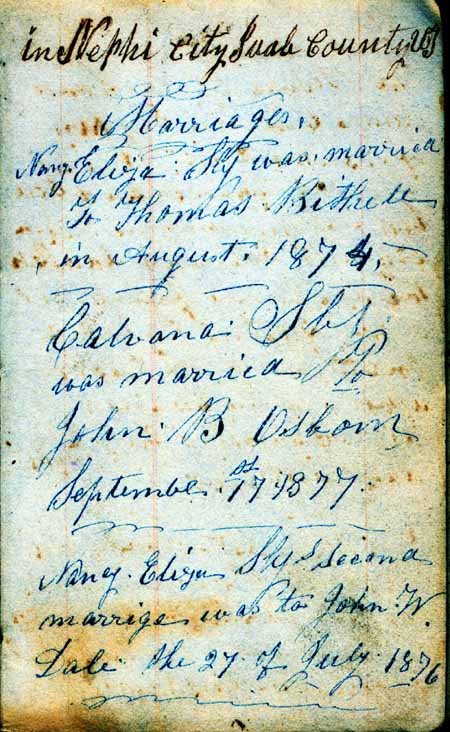 in Nephi City Juab County UT
Marriages.
Nancy Eliza Sly was married
to Thomas Bithell
in August. 1874,
Calvana: Sly.
was married To
John. B Osborn
September. 17st 1877.
Nancy. Eliza Sly's second
marrige was to John. W.
Dale the 27. of July 1876